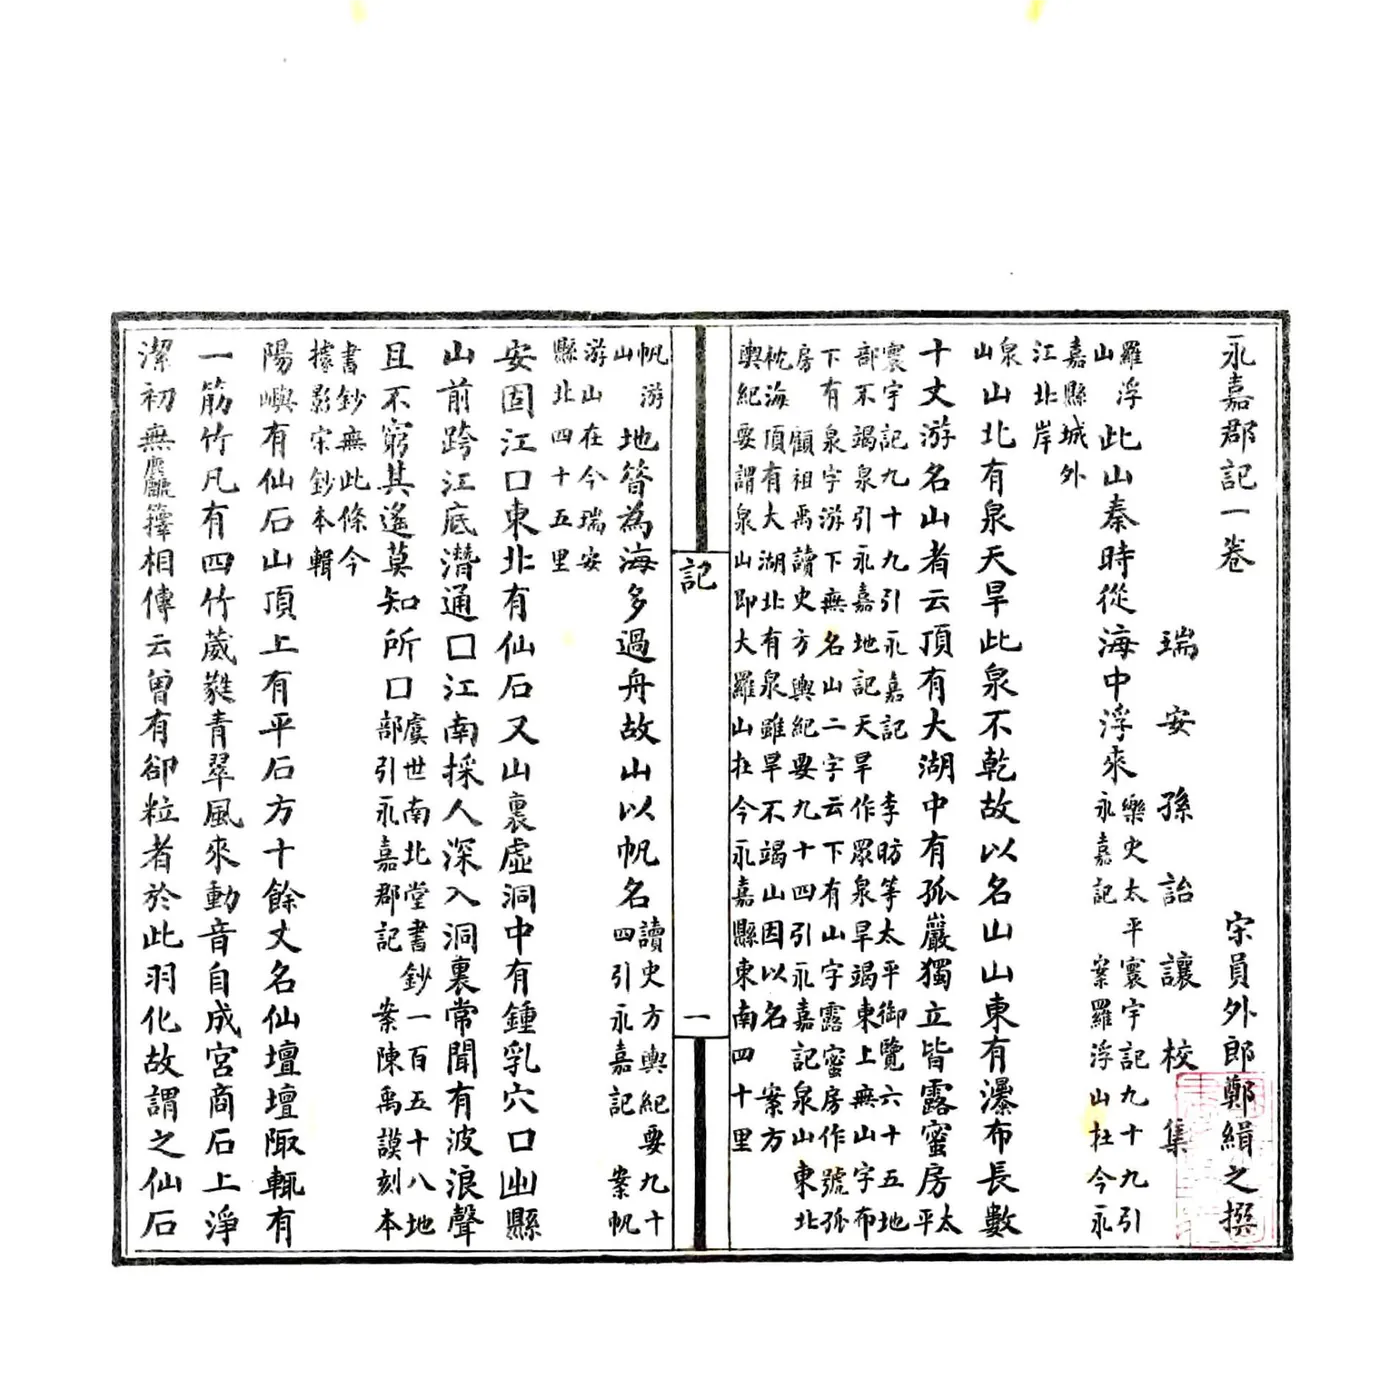 永嘉郡記一卷 宋員外郎鄭緝之撰
瑞安孫詒讓校集
羅浮山 此山秦時從海中浮來 樂史太平寰宇記九十九引
永嘉記 案羅浮山在今永
嘉縣城外
江北岸
泉山 山北有泉天旱此泉不乾故以名山山東有瀑布長數
十丈游名山者云頂有大湖中有孤巖獨立皆露蜜房 太平
寰宇記九十九引永嘉記 李昉等太平御覽六十五地
部不竭泉引永嘉地記天旱作眾泉旱竭東上無山字布
下有泉字游下無名山二字云下有山字露蜜房作號孤
房 顧祖禹讀史方輿紀要九十四引永嘉記泉山東北
枕海頂有大湖北有泉雖旱不竭山因以名 案方
輿紀要謂泉山即大羅山在今永嘉縣東南四十里
記
一
帆游山 地昝為海多過舟故山以帆名 讀史方輿紀要九十
四引永嘉記 案帆
游山在今瑞安
縣北四十五里
安固江口東北有仙石又山裏虛洞中有鍾乳穴口幽縣
山前跨江底潛通□江南採人深入洞裏常聞有波浪聲
且不窮其遙莫知所□ 虞世南北堂書鈔一百五十八地
部引永嘉郡記 案陳禹謨刻本
書鈔無此條今
據影宋鈔本輯
陽嶼有仙石山頂上有平石方十餘丈名仙壇壇陬輒有
一筋竹凡有四竹葳蕤青翠風來動音自成宮商石上淨
潔初無麤籜相傳云曾有卻粒者於此羽化故謂之仙石